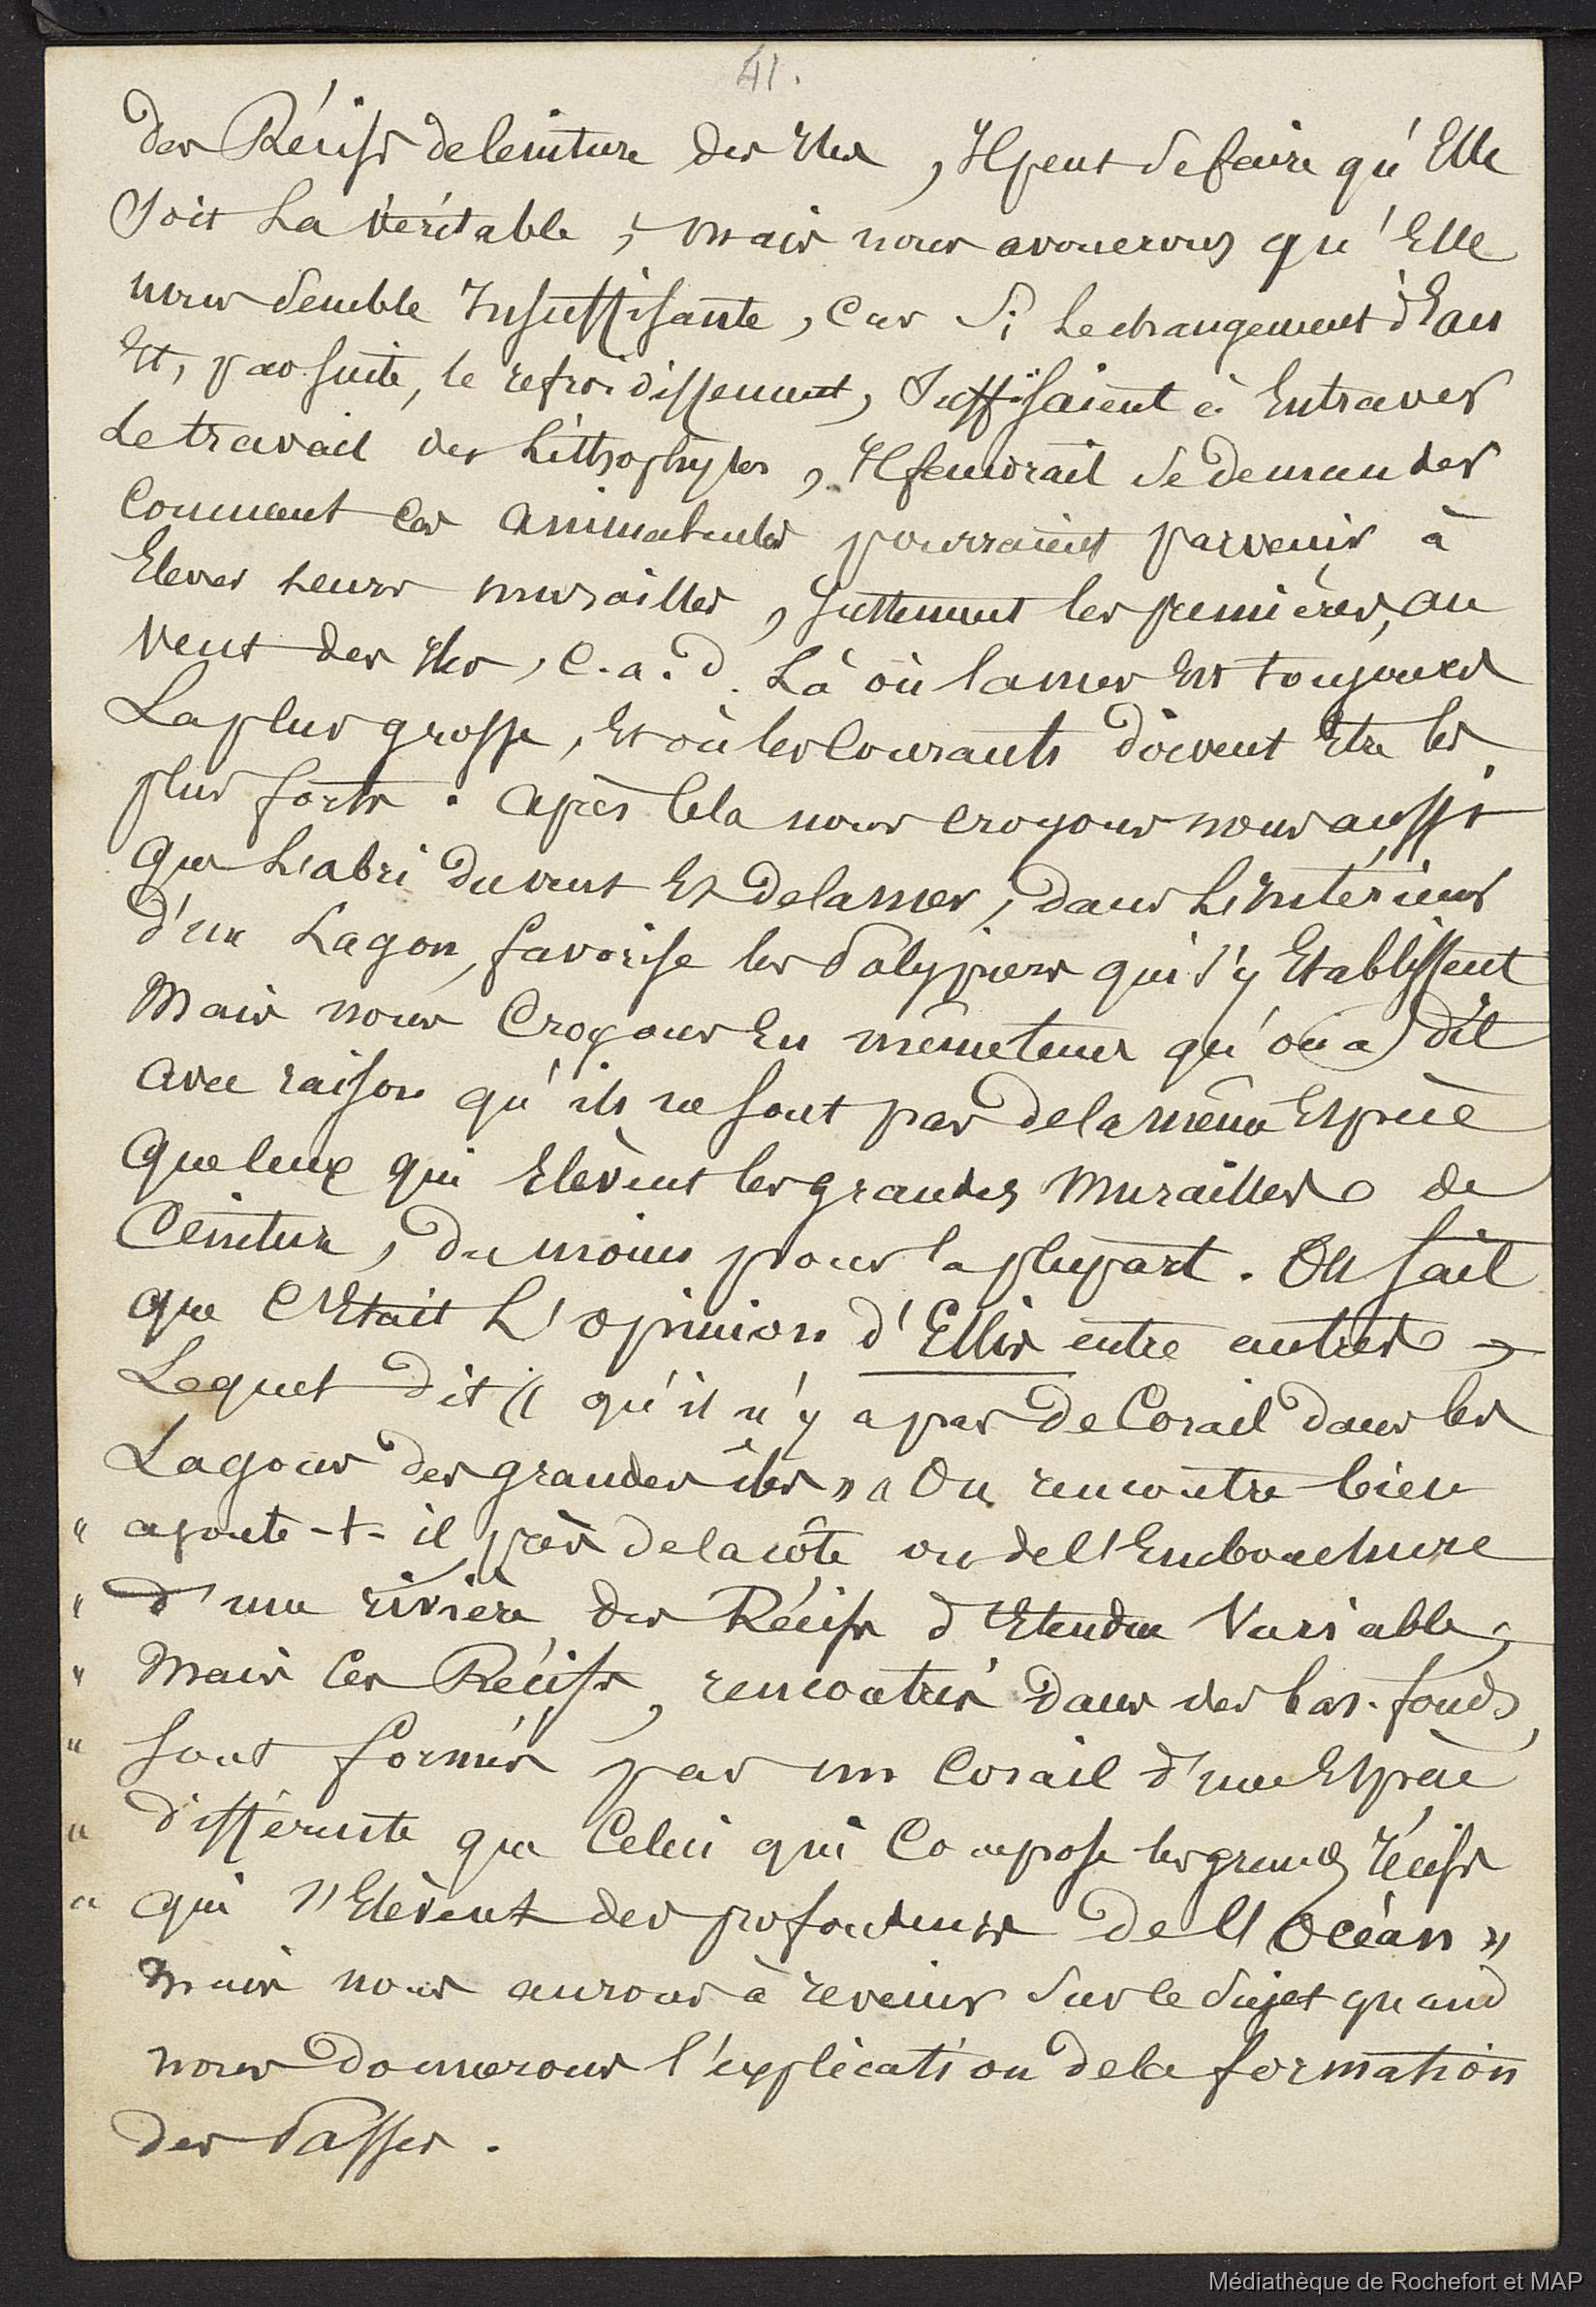 41.
des Récifs de Ceinture des Iles, Il peut se faire qu'Elle
soit La véritable ; mais nous avouerons qu'Elle
nous semble Insuffisante, car si Le changement d'Eau
Et, par suite, le refroidissement, suffisaient à Entraver
Le travail des Lithophytes, Il faudrait se demander
Comment ces animalcules pourraient parvenir à
Elever Leurs murailles, justement les premières, au
vent des Iles, c.a.d. Là où la mer Est toujours
La plus grosse, Et où les Courants doivent Etre les
plus forts. Après Cela nous croyons nous aussi
que L'abri du vent Et de la mer, dans L'Intérieur
d'un Lagon, favorise les Polypiers qui s'y Etablissent
Mais nous Croyons En même tems qu'on a dit
avec raison qu'ils ne sont pas de la même Espèce
que Ceux qui Elèvent les grandes Murailles de
Ceinture, du moins pour la plupart. On sait
que C'Etait L'opinion d'Ellis entre autres,
Lequel dit « qu'il n'y a pas de Corail dans les
Lagons des grandes îles » « On rencontre bien
" ajoute-t-il, près de la côte ou de l'Embouchure
" d'une rivière des Récifs d'Etendue Variable,
" Mais Ces Récifs, rencontrés dans des bas-fonds,
" sont formés par un Corail d'une Espèce
" différente que Celui qui Compose les grands récifs
" qui s'Elèvent des profondeurs de l'Océan »
Mais nous aurons à revenir sur ce sujet quand
nous donnerons l'explication de la formation
des Passes.
Médiathèque de Rochefort et MAP